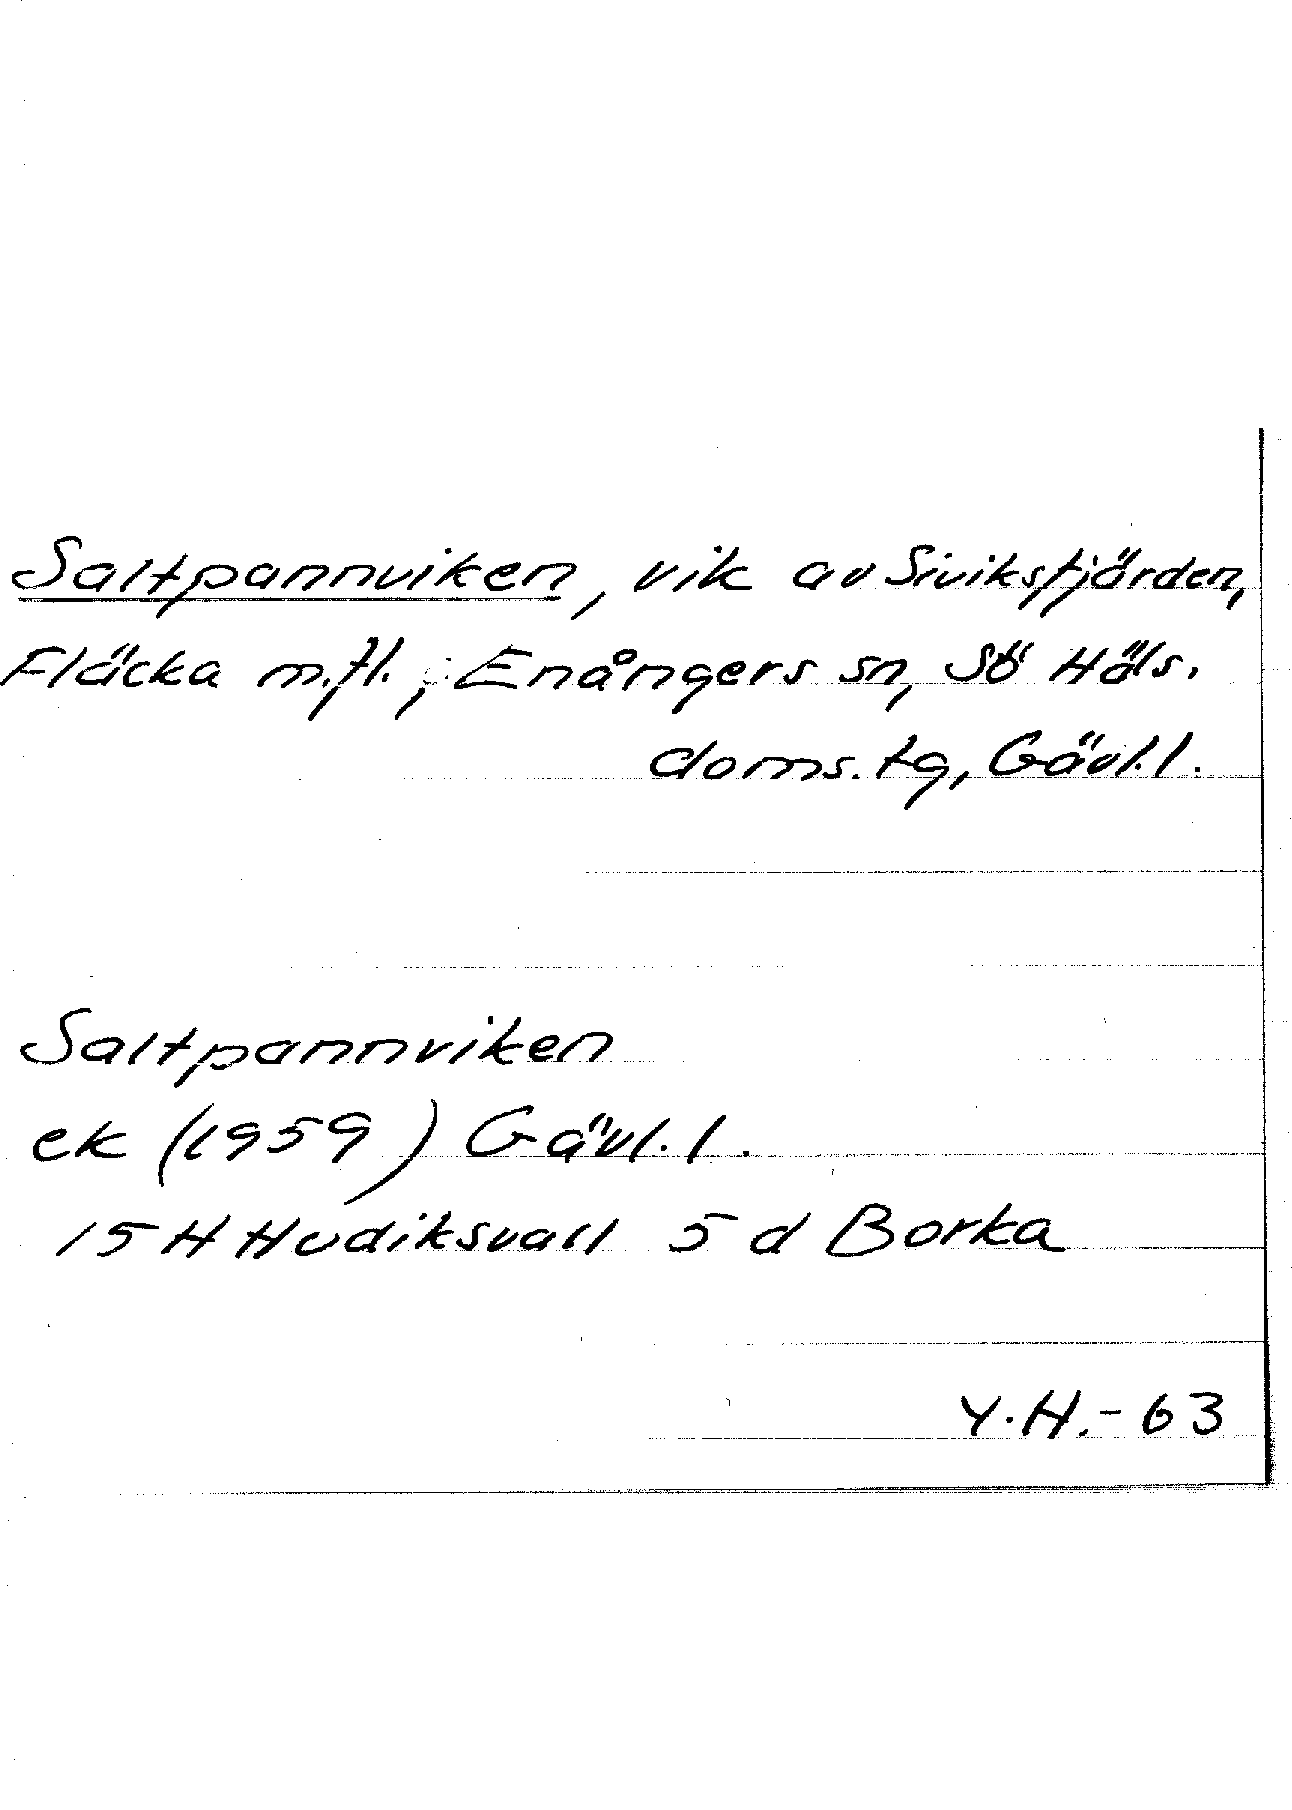 Saltpannviken, vik av Siviksfjärden,
Fläcka m.fl., Enångers sn, Sö Häls.
doms.tg, Gävl.l.
Saltpannviken
ek (1959) Gävl.l.
15 H Hudiksvall 5 d Borka
Y.H.-63